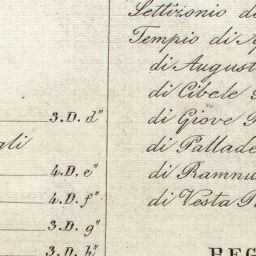 3.D. d"
gli
4.D. e"
4.D. f"
3.D. g"
3.D. h"
Settizonio
Tempio di
di August
di Cibele
di Giove
di Pallade
di Ramnu
di Vesta
REG